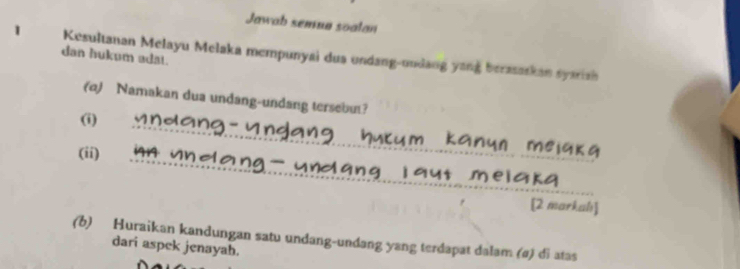 Jawab semua soalan
1 Kesultanan Melayu Melaka mempunyai dua undang-undang yang berasaskan syariah
dan hukum adat.
(a) Namakan dua undang-undang tersebut?
(i) undang-undang hukum kanun melaka
(ii) undang-undang laut melaka
[2 markah]
(b) Huraikan kandungan satu undang-undang yang terdapat dalam (a) di atas
dari aspek jenayah.